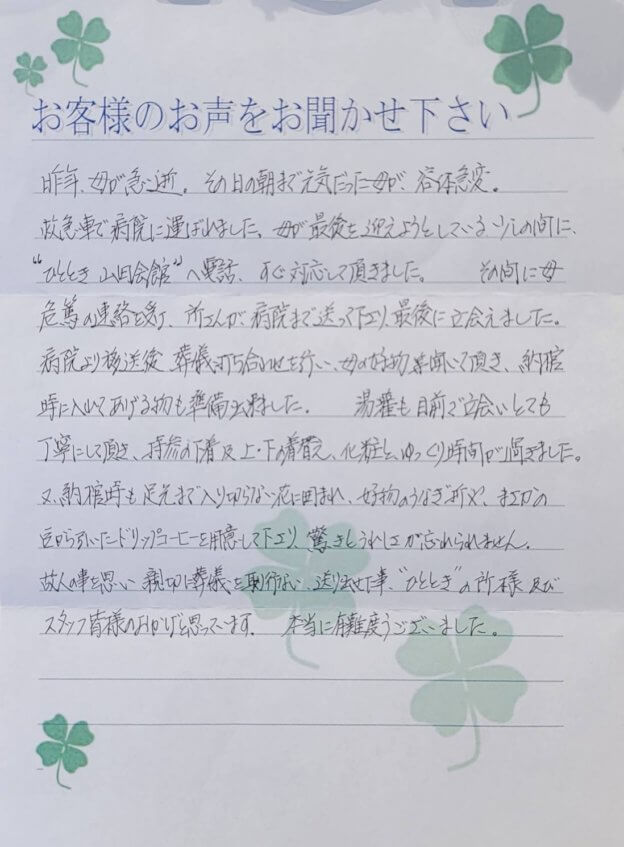 お客様のお声をお聞かせ下さい
昨年、母が急逝。その日の朝まで元気だった母が、容体急変。
救急車で病院に運ばれました。母が最後を迎えようとしている少しの間に、
“ひととき 山田会館”へ電話、すぐ対応して頂きました。 その間に母
危篤の連絡を受け、所さんが、病院まで送って下さり、最後に立会えました。
病院より移送後 葬儀打ち合わせを行い、母の好物等聞いて頂き、納棺
時に入れてあげる物も準備出来ました。 湯灌も目前で立会いとても
丁寧にして頂き、持参の下着及上・下の着替え、化粧と、ゆっくり時間が過ぎました。
又、納棺時も足元まで入り切らない花に囲まれ、好物のうなぎ、折や、まさかの
豆から引いたドリップコーヒーを用意して下さり、驚きとうれしさが忘れられません。
故人の事を思い 親切に葬儀を取り行ない、送り出せた事、“ひととき”の所様 及び
スタッフ皆様のおかげと思っています。 本当に有難度うございました。